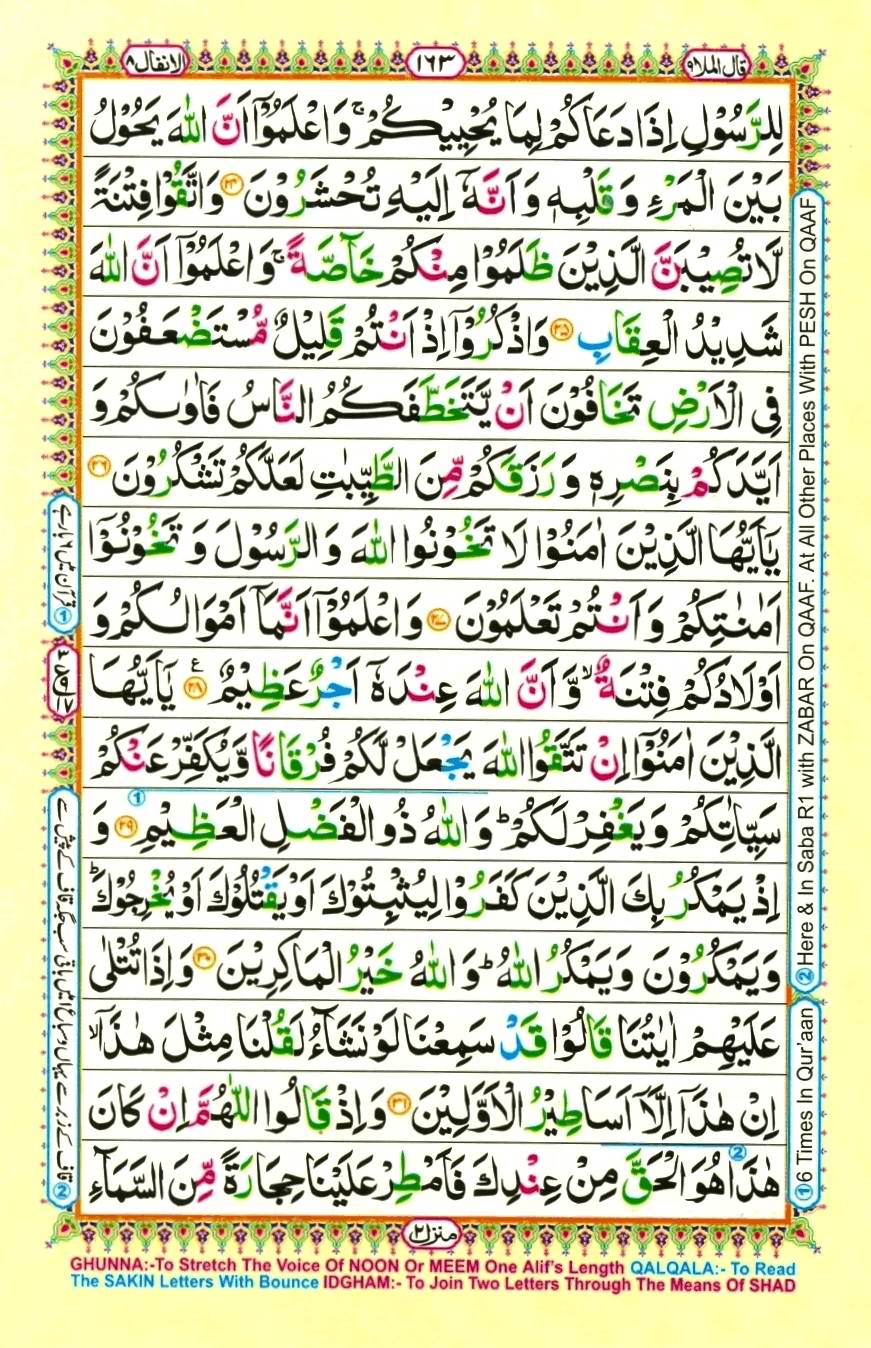 قال الملا ۹
۱۶۳
الانفال ۸
لِلرَّسُوْلِ اِذَا دَعَاكُمْ لِمَا يُحْيِيْكُمْ ۚ وَاعْلَمُوْۤا اَنَّ اللّٰهَ يَحُوْلُ
بَيْنَ الْمَرْءِ وَقَلْبِهٖ وَاَنَّهٗۤ اِلَيْهِ تُحْشَرُوْنَ ۝۲۴ وَاتَّقُوْا فِتْنَةً
لَّا تُصِيْبَنَّ الَّذِيْنَ ظَلَمُوْا مِنْكُمْ خَآصَّةً ۚ وَاعْلَمُوْۤا اَنَّ اللّٰهَ
شَدِيْدُ الْعِقَابِ ۝۲۵ وَاذْكُرُوْۤا اِذْ اَنْتُمْ قَلِيْلٌ مُّسْتَضْعَفُوْنَ
فِى الْاَرْضِ تَخَافُوْنَ اَنْ يَّتَخَطَّفَكُمُ النَّاسُ فَاٰوٰىكُمْ وَ
اَيَّدَكُمْ بِنَصْرِهٖ وَرَزَقَكُمْ مِّنَ الطَّيِّبٰتِ لَعَلَّكُمْ تَشْكُرُوْنَ ۝۲۶
يٰۤاَيُّهَا الَّذِيْنَ اٰمَنُوْا لَا تَخُوْنُوا اللّٰهَ وَالرَّسُوْلَ وَ تَخُوْنُوْۤا
اَمٰنٰتِكُمْ وَاَنْتُمْ تَعْلَمُوْنَ ۝۲۷ وَاعْلَمُوْۤا اَنَّمَاۤ اَمْوَالُكُمْ وَ
اَوْلَادُكُمْ فِتْنَةٌ ۙ وَّاَنَّ اللّٰهَ عِنْدَهٗۤ اَجْرٌ عَظِيْمٌ ۝۲۸ ع يٰۤاَيُّهَا
الَّذِيْنَ اٰمَنُوْۤا اِنْ تَتَّقُوا اللّٰهَ يَجْعَلْ لَّكُمْ فُرْقَانًا وَّيُكَفِّرْ عَنْكُمْ
سَيِّاٰتِكُمْ وَيَغْفِرْ لَكُمْ ؕ وَاللّٰهُ ذُو الْفَضْلِ الْعَظِيْمِ ۝۲۹ وَ
اِذْ يَمْكُرُ بِكَ الَّذِيْنَ كَفَرُوْا لِيُثْبِتُوْكَ اَوْ يَقْتُلُوْكَ اَوْ يُخْرِجُوْكَ ؕ
وَيَمْكُرُوْنَ وَيَمْكُرُ اللّٰهُ ؕ وَاللّٰهُ خَيْرُ الْمَاكِرِيْنَ ۝۳۰ وَاِذَا تُتْلٰى
عَلَيْهِمْ اٰيٰتُنَا قَالُوْا قَدْ سَمِعْنَا لَوْ نَشَآءُ لَقُلْنَا مِثْلَ هٰذَاۤ ۙ
اِنْ هٰذَاۤ اِلَّاۤ اَسَاطِيْرُ الْاَوَّلِيْنَ ۝۳۱ وَاِذْ قَالُوا اللّٰهُمَّ اِنْ كَانَ
هٰذَا هُوَ الْحَقَّ مِنْ عِنْدِكَ فَاَمْطِرْ عَلَيْنَا حِجَارَةً مِّنَ السَّمَآءِ
① 6 Times In Qur'aan
② Here & In Saba R1 with ZABAR On QAAF. At All Other Places With PESH On QAAF
① قرآن میں ٦ بار ہے
② قاف کے زبر سے یہاں و سباع ١ میں باقی سب جگہ قاف کے پیش سے
منزل ۲
GHUNNA:-To Stretch The Voice Of NOON Or MEEM One Alif's Length QALQALA:- To Read
The SAKIN Letters With Bounce IDGHAM:- To Join Two Letters Through The Means Of SHAD